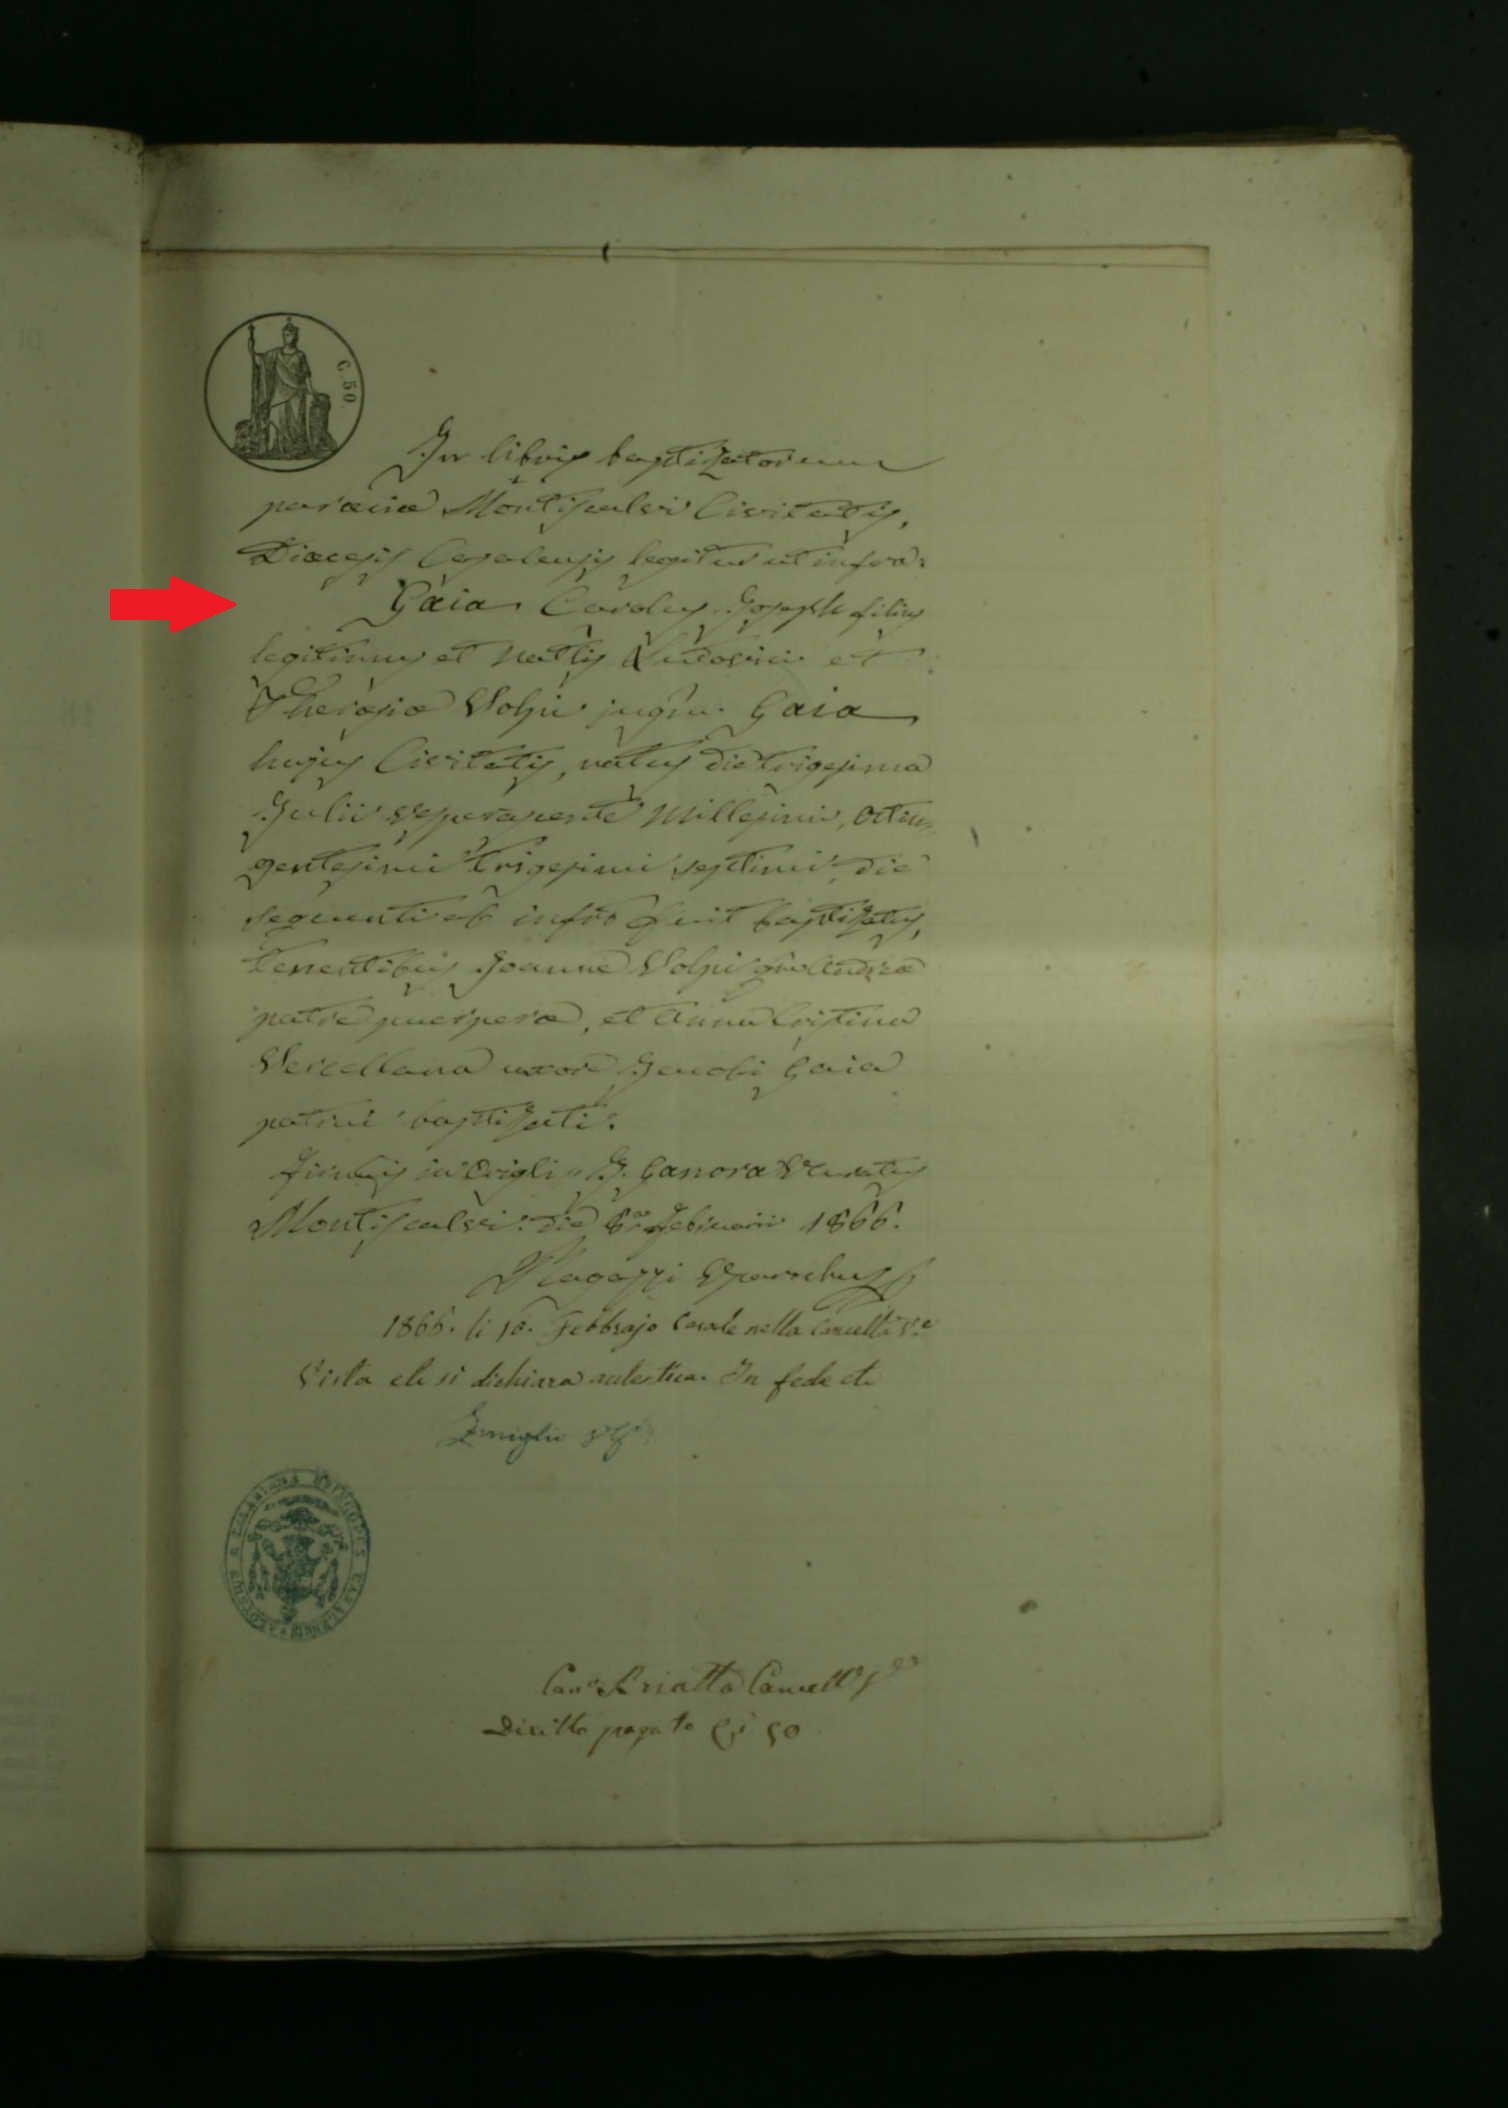 C. 50
In libris baptizatorum
parœciæ Montiscalvi Civitatis,
Diœcesis Casalensis legitur ut infra:
Gaia Carolus Joseph filius
legitimus et natlis Ludovici et
Theresiæ Volpi jugm. Gaia
hujus Civitatis, natus die trigesima
Julii vespera pente Millesimi, octin-
gentesimi trigesimi septimi, die
sequenti ab infro fuit baptizatus,
tenentibus Joanne Volpi Andrea
patre puerperæ, et Anna Cristina
Vercellana uxore Jacobi Gaia
patrui baptizati.
in Origli " G. Ganora Vcuratus
Montiscalvi: die 8a Februarii 1866.
Ragazzi Parochus
1866. li 10. Febbrajo Casale nella Cancellia V.e
Vista che si dichiara autentica. In fede etc
Can.o Cancell
Diritto pagato 50